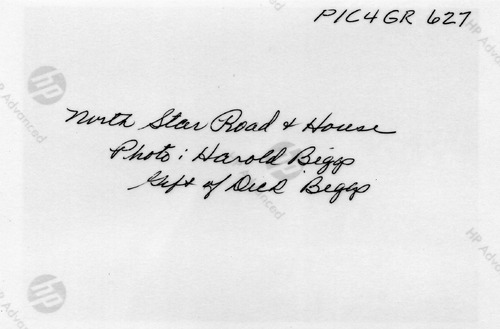 PIC4GR 627
North Star Road & House
Photo: Harold Biggs
Gift of Dick Biggs
hp
HP Advanced
hp
HP Advanced
hp
HP Advanced
HP Advanced